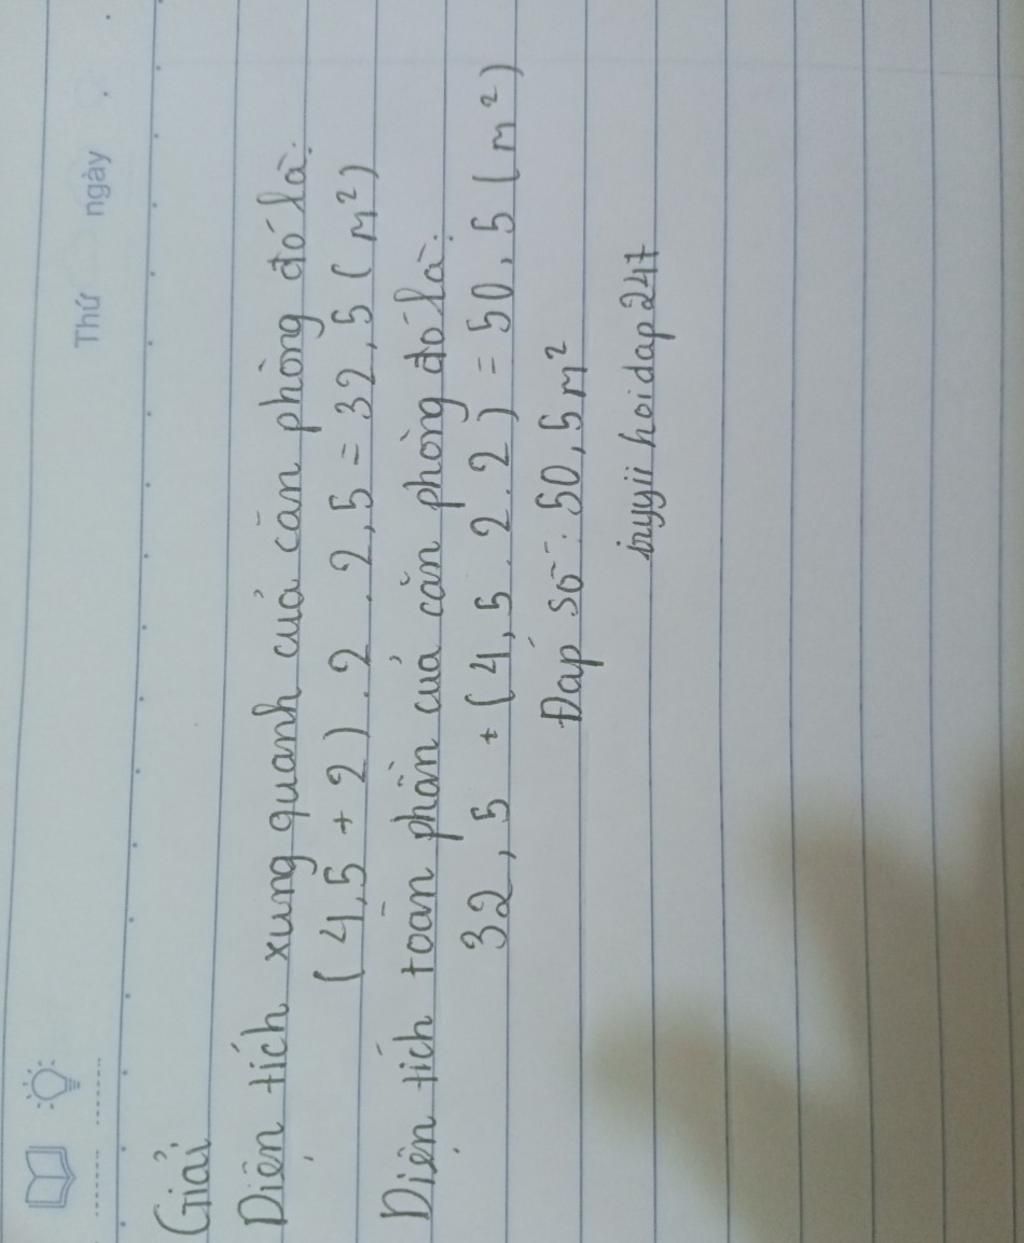 Thứ ngày
Giải
Diện tích xung quanh của căn phòng đó là:
(4,5 + 2) . 2 . 2,5 = 32,5 (m²)
Diện tích toàn phần của căn phòng đó là:
32,5 + (4,5 . 2 . 2) = 50,5 (m²)
Đáp số: 50,5 m²
hoidap247